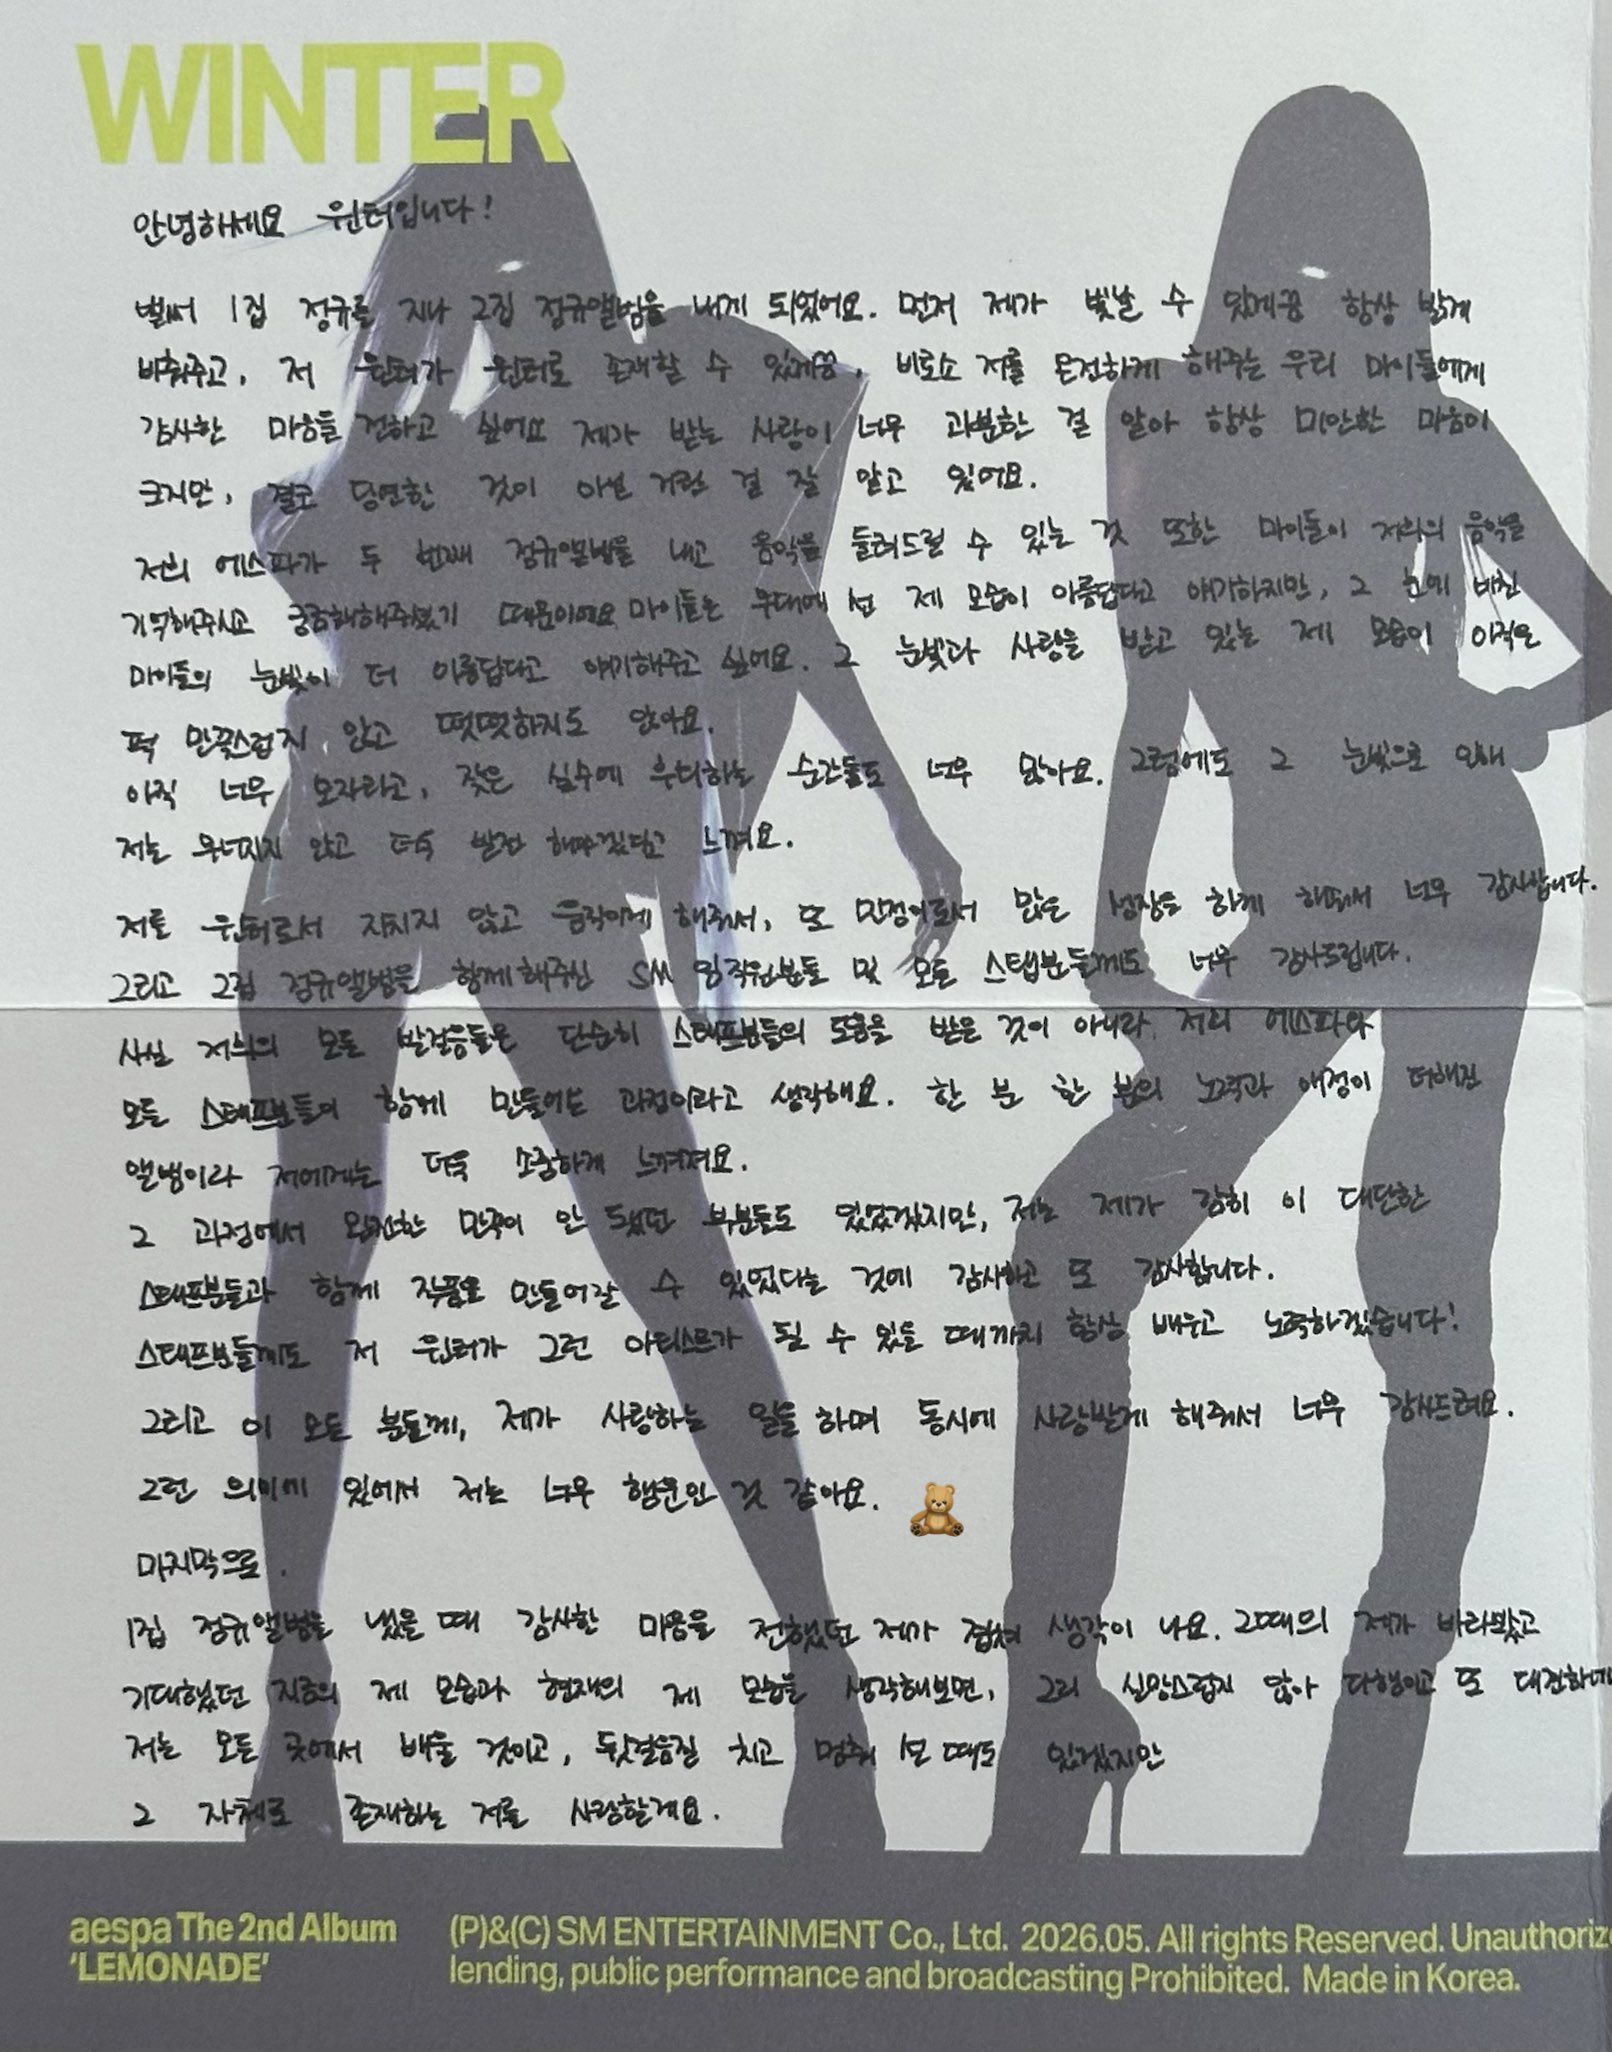 WINTER
안녕하세요 윈터입니다!
벌써 1집 정규를 지나 2집 정규앨범을 내게 되었어요. 먼저 제가 빛날 수 있게끔 항상 밝게
비춰주고, 저 윈터가 윈터로 존재할 수 있게끔, 비로소 저를 온전하게 해주는 우리 마이들에게
감사한 마음을 전하고 싶어요 제가 받는 사랑이 너무 과분한 걸 알아 항상 미안한 마음이
크지만, 결코 당연한 것이 아닌 거란 걸 잘 알고 있어요.
저희 에스파가 두 번째 정규앨범을 내고 음악을 들려드릴 수 있는 것 또한 마이들이 저희의 음악을
기억해주시고 궁금해해주셨기 때문이에요 마이들은 무대에 선 제 모습이 아름답다고 얘기하지만, 그 눈에 비친
마이들의 눈빛이 더 아름답다고 얘기해주고 싶어요. 그 눈빛과 사랑을 받고 있는 제 모습이 아직은
퍽 만족스럽지 않고 떳떳하지도 않아요.
아직 너무 모자라고, 잦은 실수에 후회하는 순간들도 너무 많아요. 그럼에도 그 눈빛으로 인해
저는 무너지지 않고 더욱 발전 해야겠다고 느껴요.
저를 윈터로서 지치지 않고 움직이게 해줘서, 또 민정이로서 많은 성장도 하게 해줘서 너무 감사합니다.
그리고 2집 정규앨범을 함께해주신 SM 임직원분들 및 모든 스탭분들께도 너무 감사드립니다.
사실 저희의 모든 발걸음들은 단순히 스태프분들의 도움을 받은 것이 아니라, 저희 에스파와
모든 스태프분들이 함께 만들어는 과정이라고 생각해요. 한 분 한 분의 노력과 애정이 더해진
앨범이라 저에게는 더욱 소중하게 느껴져요.
그 과정에서 완전한 만족이 안 됐던 부분들도 있었겠지만, 저는 제가 감히 이 대단한
스태프분들과 함께 작품을 만들어갈 수 있었다는 것에 감사하고 또 감사합니다.
스태프분들께도 저 윈터가 그런 아티스트가 될 수 있을 때까지 항상 배우고 노력하겠습니다!
그리고 이 모든 분들께, 제가 사랑하는 일을 하며 동시에 사랑받게 해줘서 너무 감사드려요.
그런 의미에 있어서 저는 너무 행운인 것 같아요.
마지막으로.
1집 정규앨범을 냈을 때 감사한 마음을 전했던 제가 겹쳐 생각이 나요. 그때의 제가 바라봤고
기대했던 지금의 제 모습과 현재의 제 모습을 생각해보면, 그리 실망스럽지 않아 다행이고 또 대견하네
저는 모든 곳에서 배울 것이고, 뒷걸음질 치고 멈춰 설 때도 있겠지만
그 자체로 존재하는 저를 사랑할게요.
aespa The 2nd Album
'LEMONADE'
(P)&(C) SM ENTERTAINMENT Co., Ltd. 2026.05. All rights Reserved. Unauthoriz
lending, public performance and broadcasting Prohibited. Made in Korea.